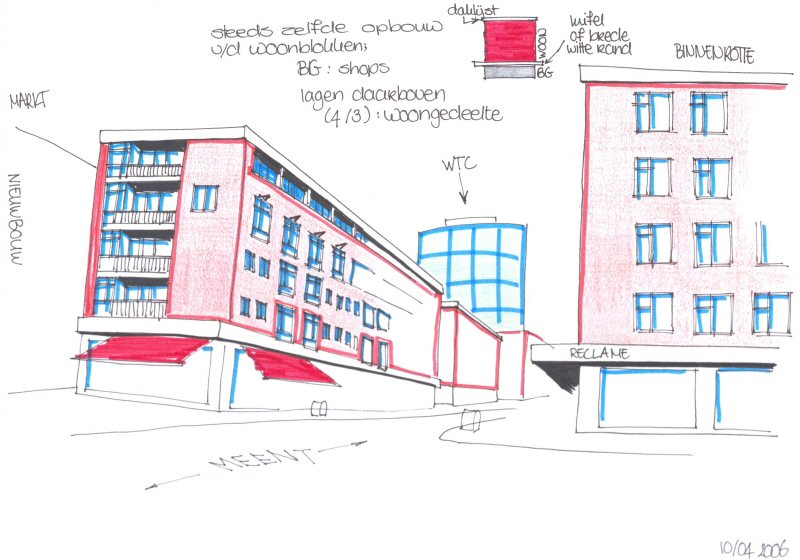 steeds zelfde opbouw
v/d woonblokken;
BG: shops
lagen daarboven
(4/3): woongedeelte
daklijst
WOON
BG
luifel
of brede
witte rand
BINNENROTTE
MARKT
NIEUWBOUW
WTC
RECLAME
MEENT
10/04 2006